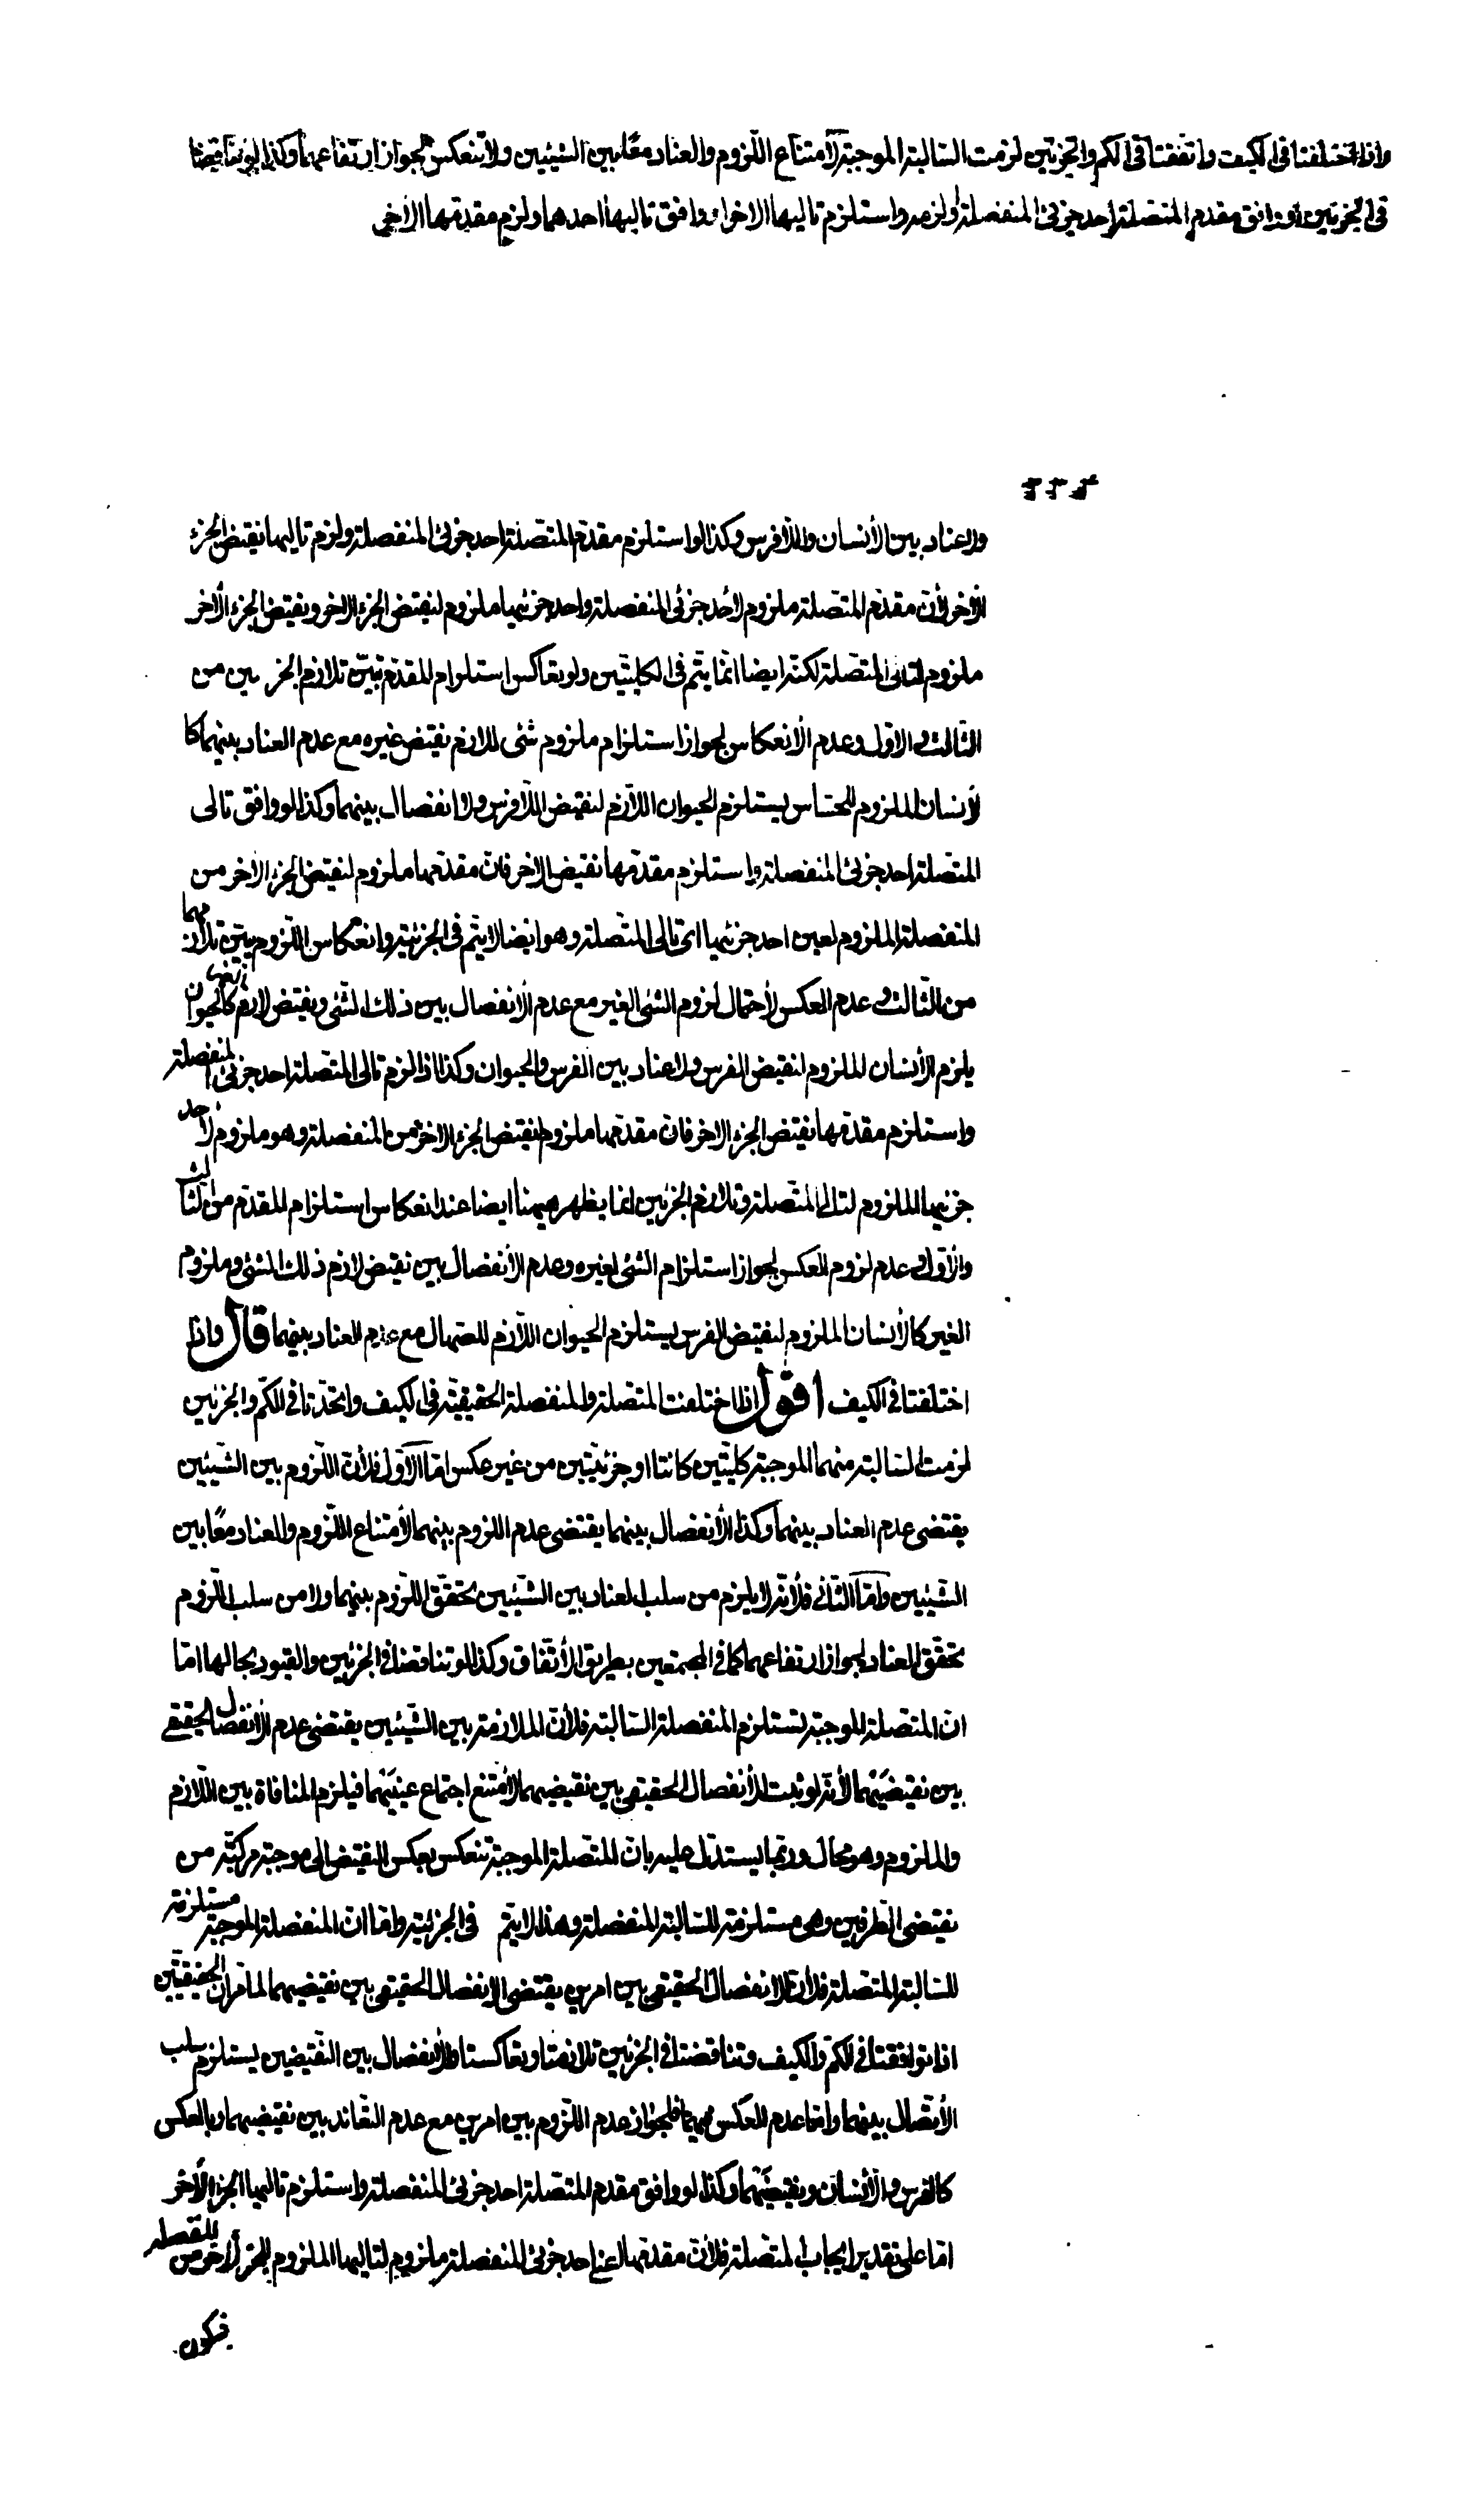 واذا اختلفتا فى الكيف واتفقتا فى الكم والجزئين لزمت السالبة الموجبة لامتناع اللزوم والعناد معًا بين الشيئين ولا تنعكس لجواز ارتفاعهما وكذا لو تناقضتا
فى الجزئين او وافق مقدم المتصلة احد جزئى المنفصلة او لزمه واستلزم تاليها الاخر او وافق تاليها احدهما ولزم مقدمها الاخر
٢٣٤
ولا عناد بين الأنسان واللافرس وكذا لو استلزم مقدم المتصلة احد جزئى المنفصلة ولزم تاليها نقيض الجزء
الأخر لأن مقدم المتصلة ملزوم لأحد جزئى المنفصلة واحد جزئيها ملزوم لنقيض الجزء الاخر ونقيض الجزء الأخر
ملزوم لتالى المتصلة لكنه ايضا انما يتم فى الكليتين ولو تعاكس استلزام المقدم تبين تلازم الجزئين من
الثالث والاول وعدم الأنعكاس لجواز استلزام ملزوم شئ للازم نقيض غيره مع عدم العناد بينهما كا
لأنسان الملزوم للحساس يستلزم الحيوان اللازم لنقيض اللافرس ولا انفصال بينهما وكذا لو وافق تالى
المتصلة احد جزئى المنفصلة واستلزم مقدمها نقيض الاخر فان مقدمها ملزوم لنقيض الجزء الاخر من
المنفصلة الملزوم لعين احد جزئيها اى تالى المتصلة وهو ايضا لا يتم فى الجزئية وانعكاس اللزوم يبين تلازمهما
من الثالث وعدم العكس لأحتمال لزوم الشئ الغير مع عدم الأنفصال بين ذلك الشئ ونقيض لازم كالحيوان
يلزم الأنسان الملزوم لنقيض الفرس ولا عناد بين الفرس والحيوان وكذا اذا لزم تالى المتصلة احد جزئى المنفصلة
واستلزم مقدمها نقيض الجزء الاخر فان مقدمها ملزوم لنقيض الجزء الاخر من المنفصلة وهو ملزوم لأحد
جزئيها الملزوم لتالى المتصلة وتلازم الجزئين انما يظهر هيهنا ايضا عند انعكاس استلزام المقدم من الثالث
والأول وعدم لزوم العكس لجواز استلزام الشئ لغيره وعدم الأنفصال بين نقيض لازم ذلك الشئ وملزوم
الغير كالأنسان الملزوم لنقيض الفرس يستلزم الحيوان اللازم للصهال مع عدم العناد بينهما قال واذا
اختلفتا فى الكيف اقول اذا اختلفت المتصلة والمنفصلة الحقيقية فى الكيف واتحدتا فى الكم والجزئين
لزمت السالبة منهما الموجبة كليتين كانتا او جزئيتين من غير عكس اما الاول فلأن اللزوم بين الشيئين
يقتضى عدم العناد بينهما وكذا الأنفصال بينهما يقتضى عدم اللزوم بينهما لأمتناع اللزوم والعناد معًا بين
الشيئين واما الثانى فلأنه لا يلزم من سلب العناد بين الشيئين تحقق اللزوم بينهما ولا من سلب اللزوم
تحقق العناد لجواز ارتفاعهما كما فى المجتمعين بطريق الأتفاق وكذا لو تناقضتا فى الجزئين والقيود بحالها اما
ان المتصلة الموجبة تستلزم المنفصلة السالبة فلأن الملازمة بين الشيئين يقتضى عدم الأنفصال الحقيقى
بين نقيضيهما لأنه لو ثبت الأنفصال الحقيقى بين نقيضيهما لأمتنع اجتماع عينيهما فيلزم المنافاة بين اللازم
والملزوم وهو محال وربما يستدل عليه بان المتصلة الموجبة تنعكس بعكس النقيض الى موجبة مركبة من
نقيضى الطرفين وهى مستلزمة للسالبة المنفصلة وهذا لا يتم فى الجزئية واما ان المنفصلة الموجبة مستلزمة
للسالبة المتصلة فلأن الانفصال الحقيقى بين امرين يقتضى الانفصال الحقيقى بين نقيضيهما لما مر ان الحقيقيتين
اذا توافقتا فى الكم والكيف وتناقضتا فى الجزئين تلازمتا وتعاكستا والأنفصال بين النقيضين يستلزم سلب
الأتصال بينهما واما عدم العكس فيهما فلجواز عدم اللزوم بين امرين مع عدم التعاند بين نقيضيهما وبالعكس
كالفرس والأنسان ونقيضيهما وكذا لو وافق مقدم المتصلة احد جزئى المنفصلة واستلزم تاليها الجزء الأخر
اما على تقدير ايجاب المتصلة فلأن مقدمها اعنى احد جزئى المنفصلة ملزوم لتاليها الملزوم للجزء الأخر من المنفصلة
فيكون